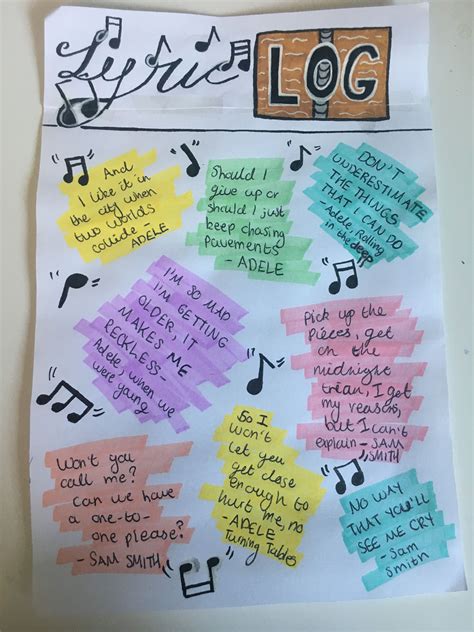 Lyric LOG
And
I like it in
the city when
two worlds
collide -
ADELE
Should I
give up or
should I just
beep chasing
pavements
- ADELE
DON'T
UNDERESTIMATE
THE THINGS
THAT I CAN DO
- Adele, Rolling
in the deep
I'M SO MAD
I'M GETTING
OLDER, IT
MAKES ME
RECKLESS -
Adele, when we
were young
Pick up the
pieces, get
on the
midnight
trian, I got
my reasons,
but I can't
explain - SAM
SMITH
Won't you
call me?
can we have
a one-to-
one please?
- SAM SMITH
So I
won't
let you
get close
enough to
hurt me, no
- ADELE
Turning Tables
NO WAY
THAT YOU'LL
SEE ME CRY
- Sam
Smith